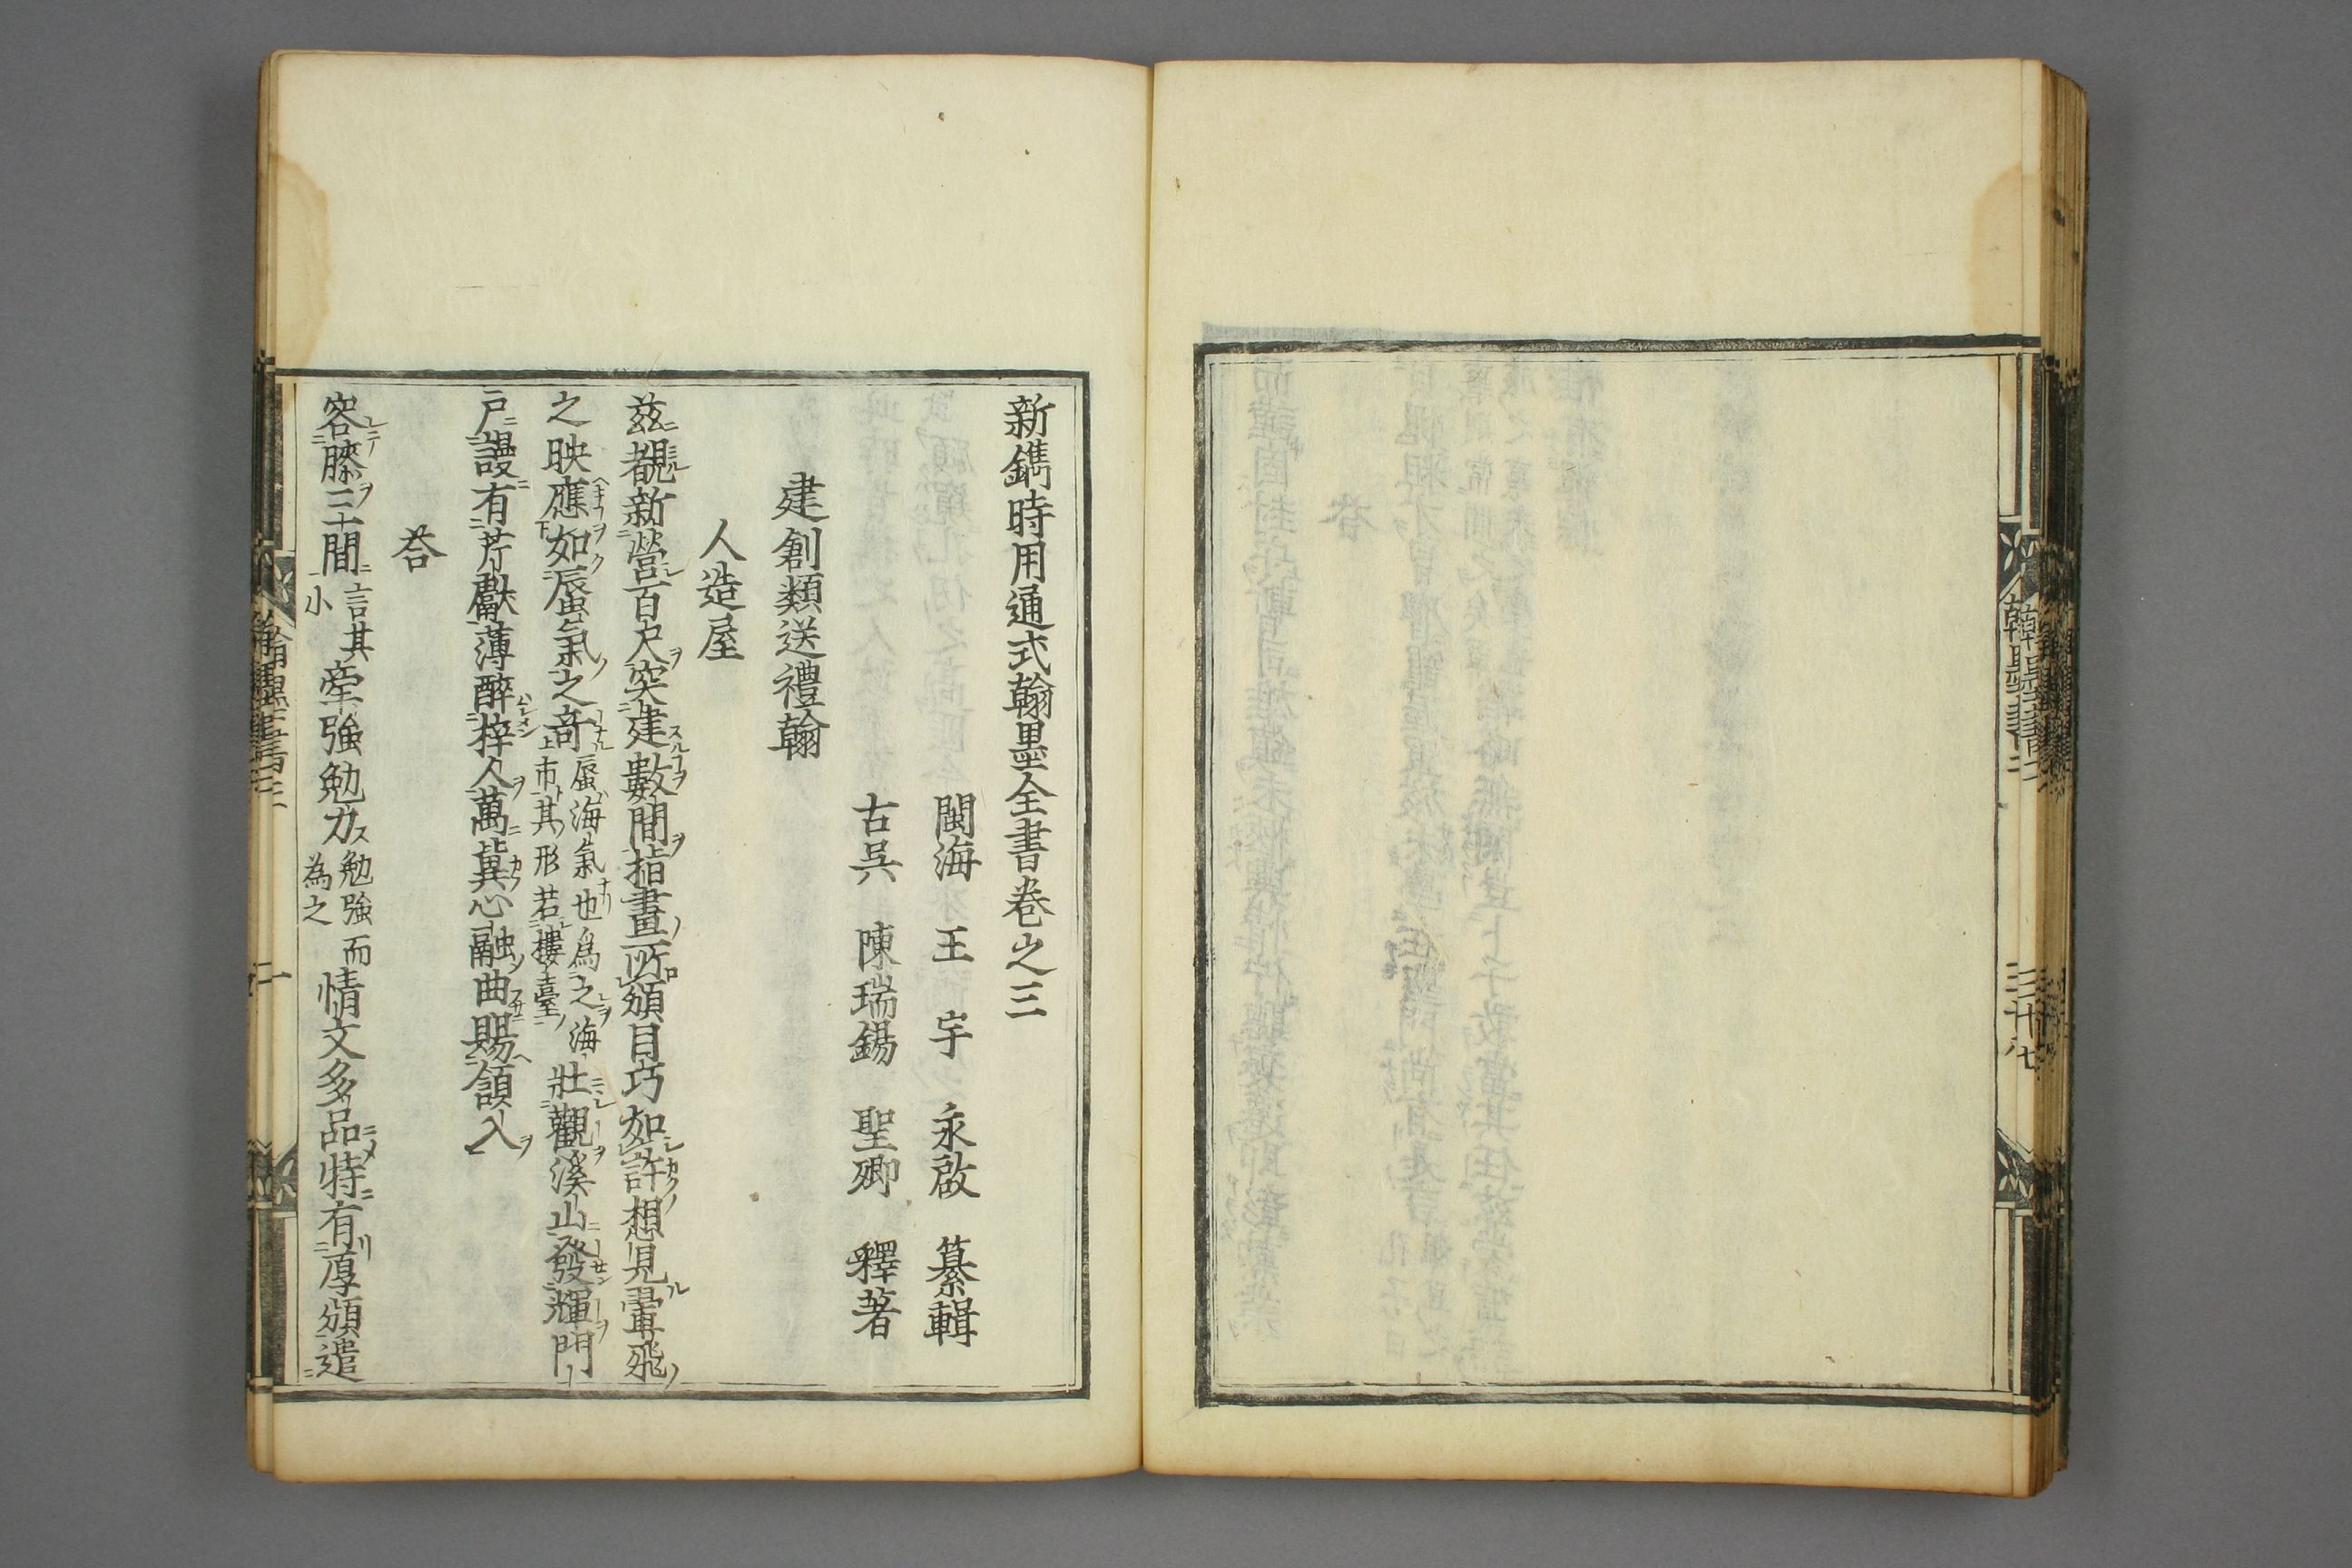 新鐫時用通式翰墨全書卷之三
閩海 王宇 永啟 纂輯
古吳 陳瑞錫 聖卿 釋著
建創類送禮翰
人造屋
茲覩新營百尺突建數間指畫所頒目巧如許想見翬飛
之映應如蜃氣之奇蜃海氣也為之海市其形若樓臺壯觀溪山發輝門
戶謾有芹獻薄醉梓人萬冀心融曲賜頷入
荅
容膝三間言其小牽強勉力勉強而為之情文多品特有厚頒遣